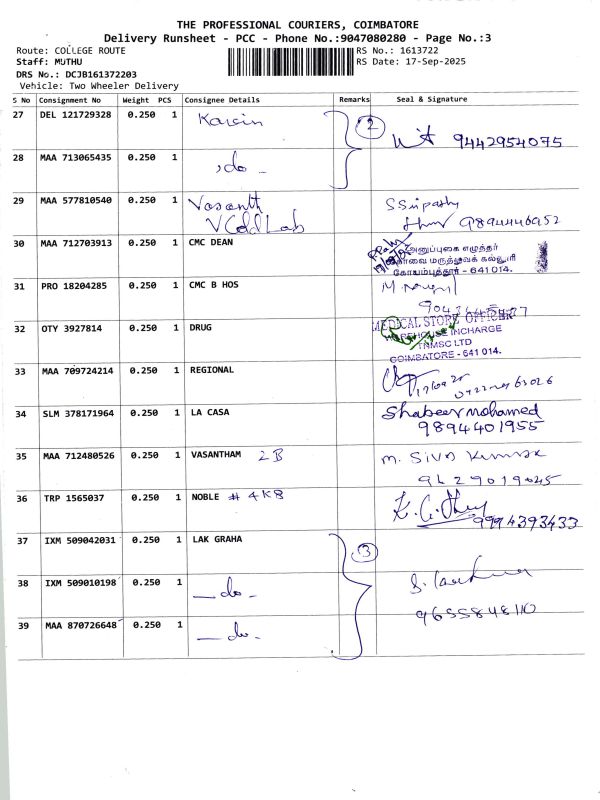 THE PROFESSIONAL COURIERS, COIMBATORE
Delivery Runsheet - PCC - Phone No.:9047080280 - Page No.:3
Route: COLLEGE ROUTE RS No.: 1613722
Staff: MUTHU RS Date: 17-Sep-2025
DRS No.: DCJB161372203
Vehicle: Two Wheeler Delivery
S No Consignment No Weight PCS Consignee Details Remarks Seal & Signature
27 DEL 121729328 0.250 1 2 9442954075
28 MAA 713065435 0.250 1 do -
29 MAA 577810540 0.250 1 Vasanth
V Cold Lab 9894446952
30 MAA 712703913 0.250 1 CMC DEAN அனுப்புகை எழுத்தர்
கோவை மருத்துவக் கல்லூரி
கோயம்புத்தூர் - 641 014.
31 PRO 18204285 1 0.250 CMC B HOS
32 OTY 3927814 0.250 1 DRUG MEDICAL STORE OFFICER
WAREHOUSE INCHARGE
TNMSC LTD
COIMBATORE - 641 014.
33 MAA 709724214 0.250 1 REGIONAL
34 SLM 378171964 0.250 1 LA CASA Shabeer mohamed
9894401955
35 MAA 712480526 0.250 1 VASANTHAM 2B m. Siva Kumar
9429019045
36 TRP 1565037 0.250 1 NOBLE # 4K8 9994393433
37 IXM 509042031 0.250 1 LAK GRAHA 3
38 IXM 509010198 0.250 1 - do -
9655848110
39 MAA 870726648 0.250 1 - do -